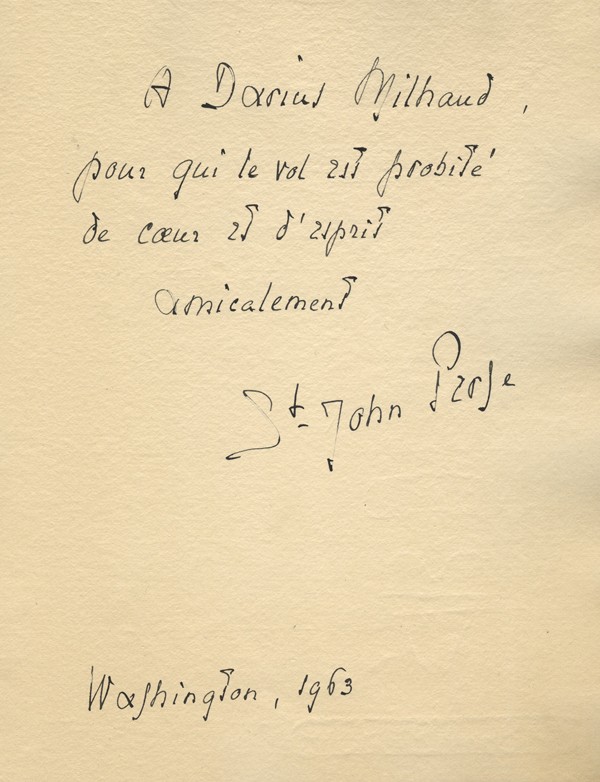 A Darius Milhaud,
pour qui le vol est probité
de cœur et d'esprit
amicalement
St. John Perse
Washington, 1963